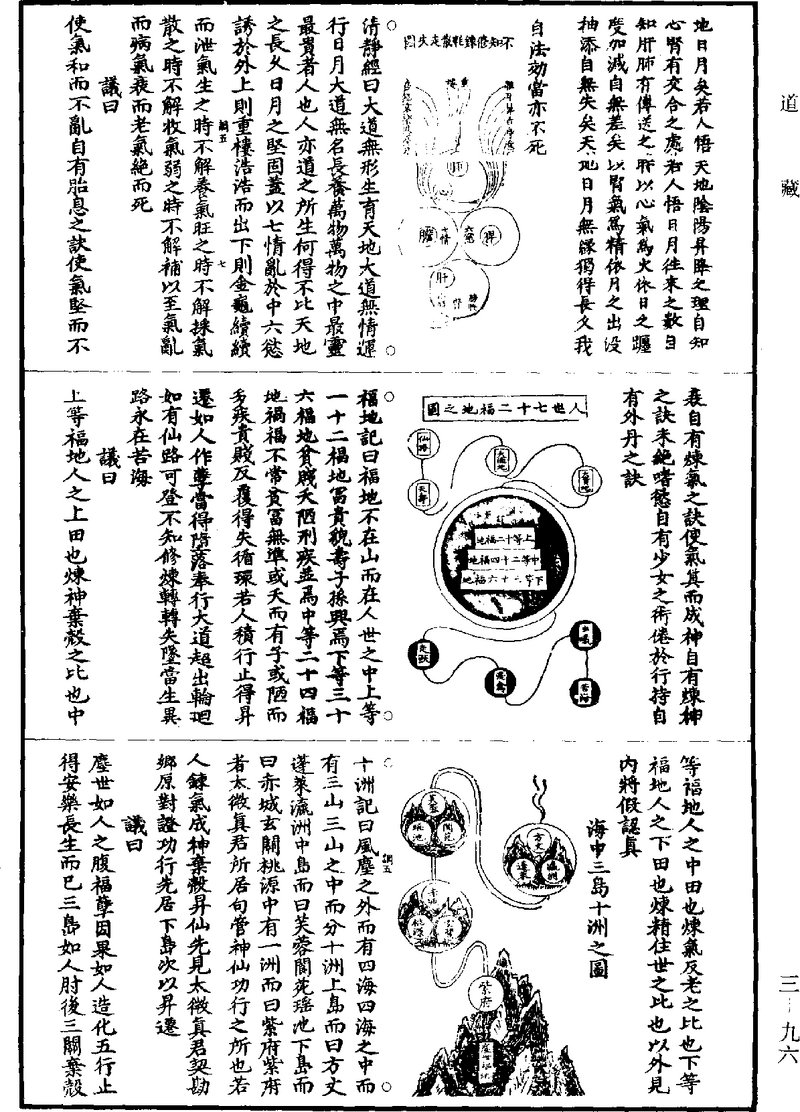 道藏
三—九六
地日月矣若人悟天地陰陽昇降之理自知
心腎有交合之處若人悟日月往來之數自
知肝肺有傳送之時以心氣為火依日之躔
度加減自無差矣以腎氣為精依月之出沒
抽添自無失矣天地日月無緣獨得長久我
自法効當亦不死
不知修鍊耗散走失圖
肺
脾
膽
肝
腎
清靜經曰大道無形生育天地大道無情運
行日月大道無名長養萬物萬物之中最靈
最貴者人也人亦道之所生何得不比天地
之長久日月之堅固蓋以七情亂於中六慾
誘於外上則重樓浩浩而出下則金龜續續
而泄氣生之時不解養氣旺之時不解採氣
散之時不解收氣弱之時不解補以至氣亂
而病氣衰而老氣絕而死
議曰
使氣和而不亂自有胎息之訣使氣堅而不
衰自有煉氣之訣使氣真而成神自有煉神
之訣未絕嗜慾自有少女之術倦於行持自
有外丹之訣
人世七十二福地之圖
上等十二福地
中等二十四福地
下等三十六福地
福地記曰福地不在山而在人世之中上等
一十二福地冨貴貌壽子孫興焉下等三十
六福地貧賤夭陋刑疾並焉中等二十四福
地禍福不常貧冨無準或夭而有子或陋而
多疾貴賤反覆得失循環若人積行止得昇
遷如人作孽當得隋落奉行大道超出輪迴
如有仙路可登不知修煉轉轉失墜當生異
路永在苦海
議曰
上等福地人之上田也煉神棄殼之比也中
等福地人之中田也煉氣反老之比也下等
福地人之下田也煉精住世之比也以外見
內將假認真
海中三島十洲之圖
方丈
蓬萊
瀛洲
芙蓉
閬苑
瑤池
紫府
十洲記曰風塵之外而有四海四海之中而
有三山三山之中而分十洲上島而曰方丈
蓬萊瀛洲中島而曰芙蓉閬苑瑤池下島而
曰赤城玄關桃源中有一洲而曰紫府紫府
者太微真君所居句管神仙功行之所也若
人鍊氣成神棄殼昇仙先見太微真君契勘
鄉原對證功行先居下島次以昇遷
議曰
塵世如人之腹福孽因果如人造化五行止
得安樂長生而已三島如人肘後三關棄殼